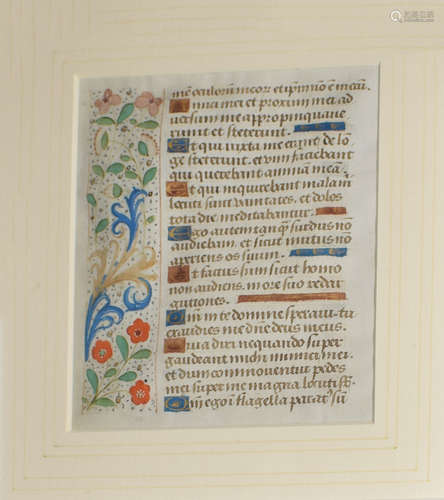 me oculorum meor et ipm no e mecu.
Amici mei et proximi mei ad
versum me appropinquave
runt et steterunt.
Et qui iuxta me erant de lo
ge steterunt. et vim faciebant
qui querebant animam meā.
Et qui inquirebant mala m
locuti sunt vanitates. et dolos
tota die meditabantur.
Ego autem tanqȝ surdus nō
audiebam. et sicut mutus nō
aperiens os suum.
Et factus sum sicut homo
non audiens. et nō
gutiones.
Qm in te domine speravi. tu
exaudies me dne deus meus.
Quia dixi nequando super
gaudeant michi inimici mei.
et dum commoventur pedes
mei super me magna locuti sū.
Qm ego i flagella parat sū